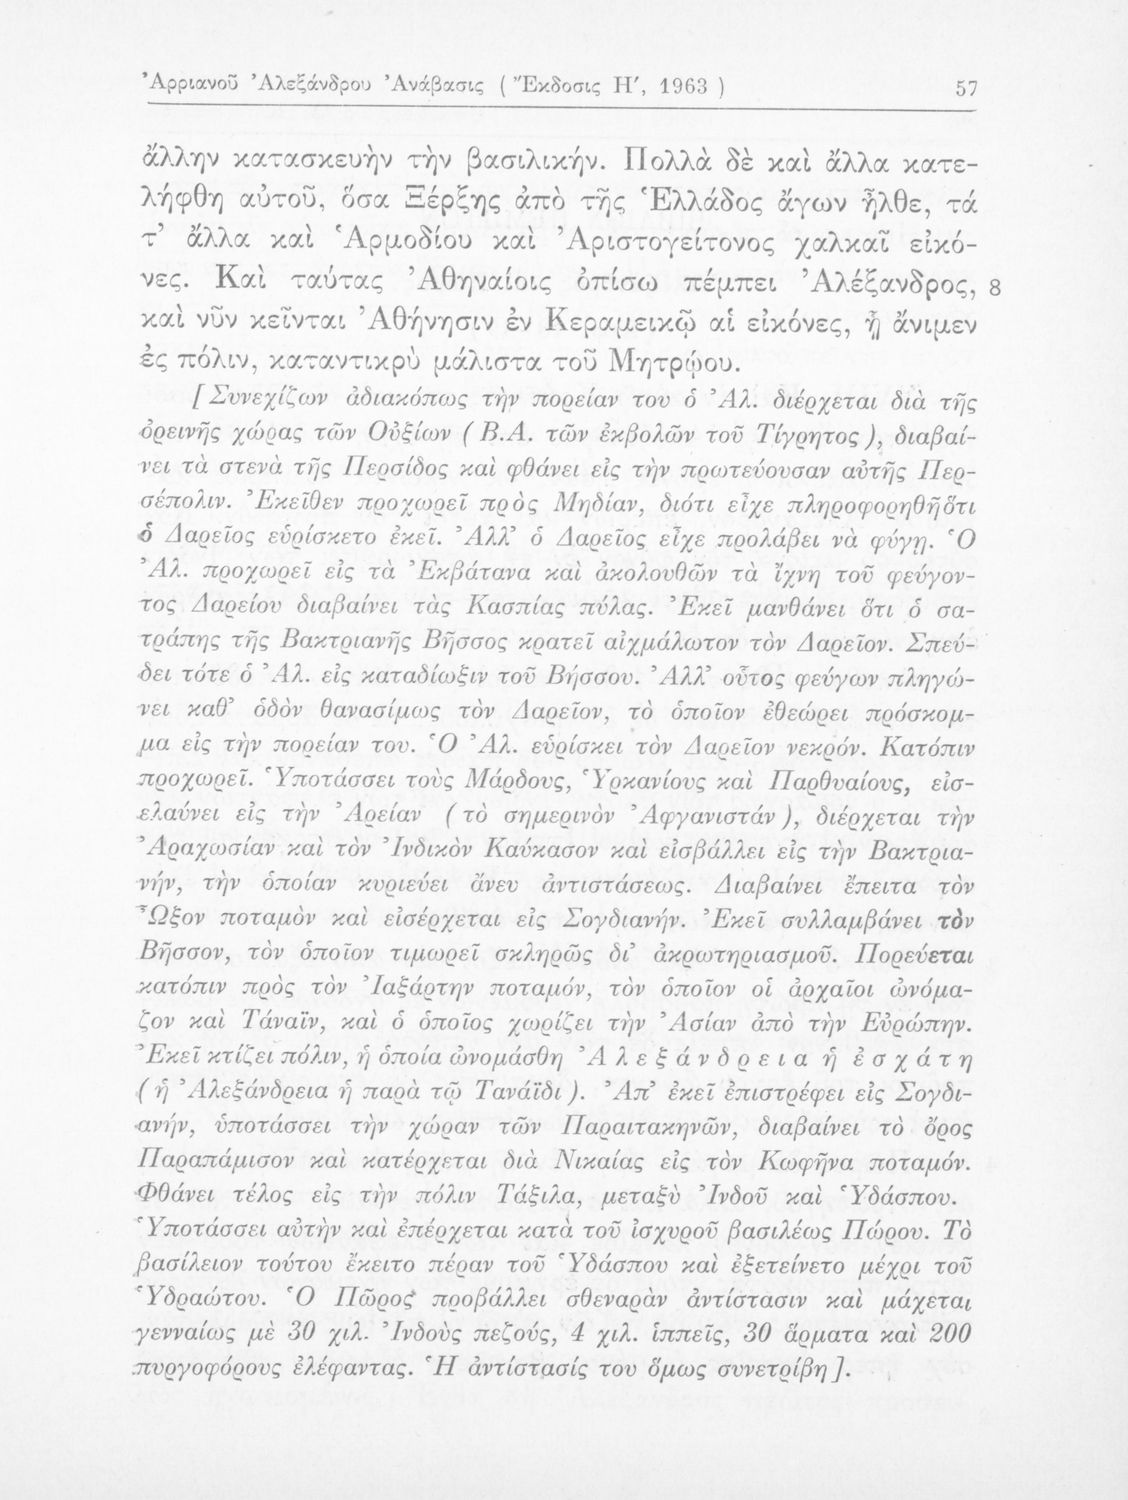 Ἀρριανοῦ Ἀλεξάνδρου Ἀνάβασις ( Ἔκδοσις Η′, 1963 ) 57
ἄλλην κατασκευὴν τὴν βασιλικήν. Πολλὰ δὲ καὶ ἄλλα κατε-
λήφθη αὐτοῦ, ὅσα Ξέρξης ἀπὸ τῆς Ἑλλάδος ἄγων ἦλθε, τά
τ’ ἄλλα καὶ Ἁρμοδίου καὶ Ἀριστογείτονος χαλκαῖ εἰκό-
νες. Καὶ ταύτας Ἀθηναίοις ὀπίσω πέμπει Ἀλέξανδρος, 8
καὶ νῦν κεῖνται Ἀθήνησιν ἐν Κεραμεικῷ αἱ εἰκόνες, ᾗ ἄνιμεν
ἐς πόλιν, καταντικρὺ μάλιστα τοῦ Μητρῴου.
[ Συνεχίζων ἀδιακόπως τὴν πορείαν του ὁ Ἀλ. διέρχεται διὰ τῆς
ὀρεινῆς χώρας τῶν Οὐξίων ( Β.Α. τῶν ἐκβολῶν τοῦ Τίγρητος ), διαβαί-
νει τὰ στενὰ τῆς Περσίδος καὶ φθάνει εἰς τὴν πρωτεύουσαν αὐτῆς Περ-
σέπολιν. Ἐκεῖθεν προχωρεῖ πρὸς Μηδίαν, διότι εἶχε πληροφορηθῆ ὅτι
ὁ Δαρεῖος εὑρίσκετο ἐκεῖ. Ἀλλ’ ὁ Δαρεῖος εἶχε προλάβει νὰ φύγῃ. Ὁ
Ἀλ. προχωρεῖ εἰς τὰ Ἐκβάτανα καὶ ἀκολουθῶν τὰ ἴχνη τοῦ φεύγον-
τος Δαρείου διαβαίνει τὰς Κασπίας πύλας. Ἐκεῖ μανθάνει ὅτι ὁ σα-
τράπης τῆς Βακτριανῆς Βῆσσος κρατεῖ αἰχμάλωτον τὸν Δαρεῖον. Σπεύ-
δει τότε ὁ Ἀλ. εἰς καταδίωξιν τοῦ Βήσσου. Ἀλλ’ οὗτος φεύγων πληγώ-
νει καθ’ ὁδὸν θανασίμως τὸν Δαρεῖον, τὸ ὁποῖον ἐθεώρει πρόσκομ-
μα εἰς τὴν πορείαν του. Ὁ Ἀλ. εὑρίσκει τὸν Δαρεῖον νεκρόν. Κατόπιν
προχωρεῖ. Ὑποτάσσει τοὺς Μάρδους, Ὑρκανίους καὶ Παρθυαίους, εἰσ-
ελαύνει εἰς τὴν Ἀρείαν ( τὸ σημερινὸν Ἀφγανιστάν ), διέρχεται τὴν
Ἀραχωσίαν καὶ τὸν Ἰνδικὸν Καύκασον καὶ εἰσβάλλει εἰς τὴν Βακτρια-
νήν, τὴν ὁποίαν κυριεύει ἄνευ ἀντιστάσεως. Διαβαίνει ἔπειτα τὸν
Ὦξον ποταμὸν καὶ εἰσέρχεται εἰς Σογδιανήν. Ἐκεῖ συλλαμβάνει τὸν
Βῆσσον, τὸν ὁποῖον τιμωρεῖ σκληρῶς δι’ ἀκρωτηριασμοῦ. Πορεύεται
κατόπιν πρὸς τὸν Ἰαξάρτην ποταμόν, τὸν ὁποῖον οἱ ἀρχαῖοι ὠνόμα-
ζον καὶ Τάναϊν, καὶ ὁ ὁποῖος χωρίζει τὴν Ἀσίαν ἀπὸ τὴν Εὐρώπην.
Ἐκεῖ κτίζει πόλιν, ἡ ὁποία ὠνομάσθη Ἀ λ ε ξ ά ν δ ρ ε ι α ἡ ἐ σ χ ά τ η
( ἡ Ἀλεξάνδρεια ἡ παρὰ τῷ Τανάϊδι ). Ἀπ’ ἐκεῖ ἐπιστρέφει εἰς Σογδι-
ανήν, ὑποτάσσει τὴν χώραν τῶν Παραιτακηνῶν, διαβαίνει τὸ ὄρος
Παραπάμισον καὶ κατέρχεται διὰ Νικαίας εἰς τὸν Κωφῆνα ποταμόν.
Φθάνει τέλος εἰς τὴν πόλιν Τάξιλα, μεταξὺ Ἰνδοῦ καὶ Ὑδάσπου.
Ὑποτάσσει αὐτὴν καὶ ἐπέρχεται κατὰ τοῦ ἰσχυροῦ βασιλέως Πώρου. Τὸ
βασίλειον τούτου ἔκειτο πέραν τοῦ Ὑδάσπου καὶ ἐξετείνετο μέχρι τοῦ
Ὑδραώτου. Ὁ Πῶρος προβάλλει σθεναρὰν ἀντίστασιν καὶ μάχεται
γενναίως μὲ 30 χιλ. Ἰνδοὺς πεζούς, 4 χιλ. ἱππεῖς, 30 ἅρματα καὶ 200
πυργοφόρους ἐλέφαντας. Ἡ ἀντίστασίς του ὅμως συνετρίβη ].